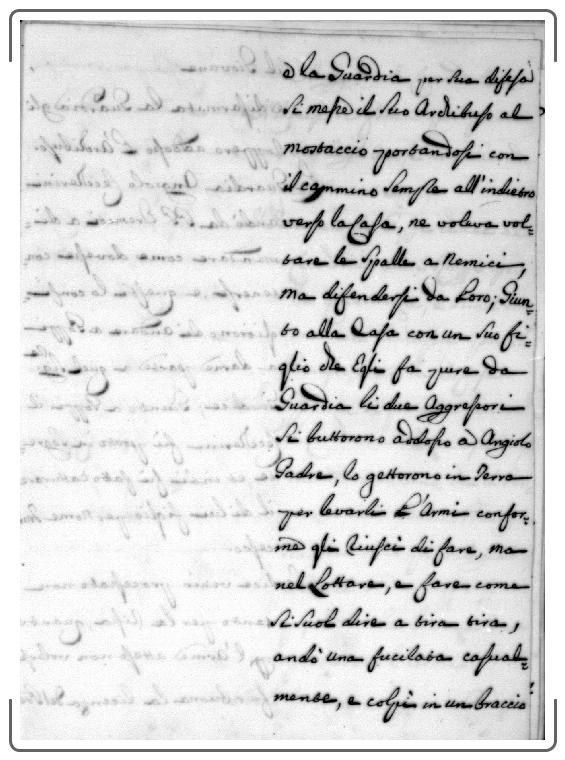 e la Guardia per sua difesa
si messe il suo Archibuso al
mostaccio portandosi con
il cammino sempre all'indietro
verso la Casa, ne voleva vol=
tare le Spalle a Nemici,
ma difendersi da Loro; Giun=
to alla Casa con un suo fi=
glio che Egli fa pure da
Guardia li due Aggressori
si buttorono addosso à Angiolo
Padre, lo gettorono in Terra
per levarli l'Armi confor=
me gli riuscì di fare, ma
nel Lottare, e fare come
si suol dire a tira tira,
andò una fucilata casual=
mente, e colpì in un braccio